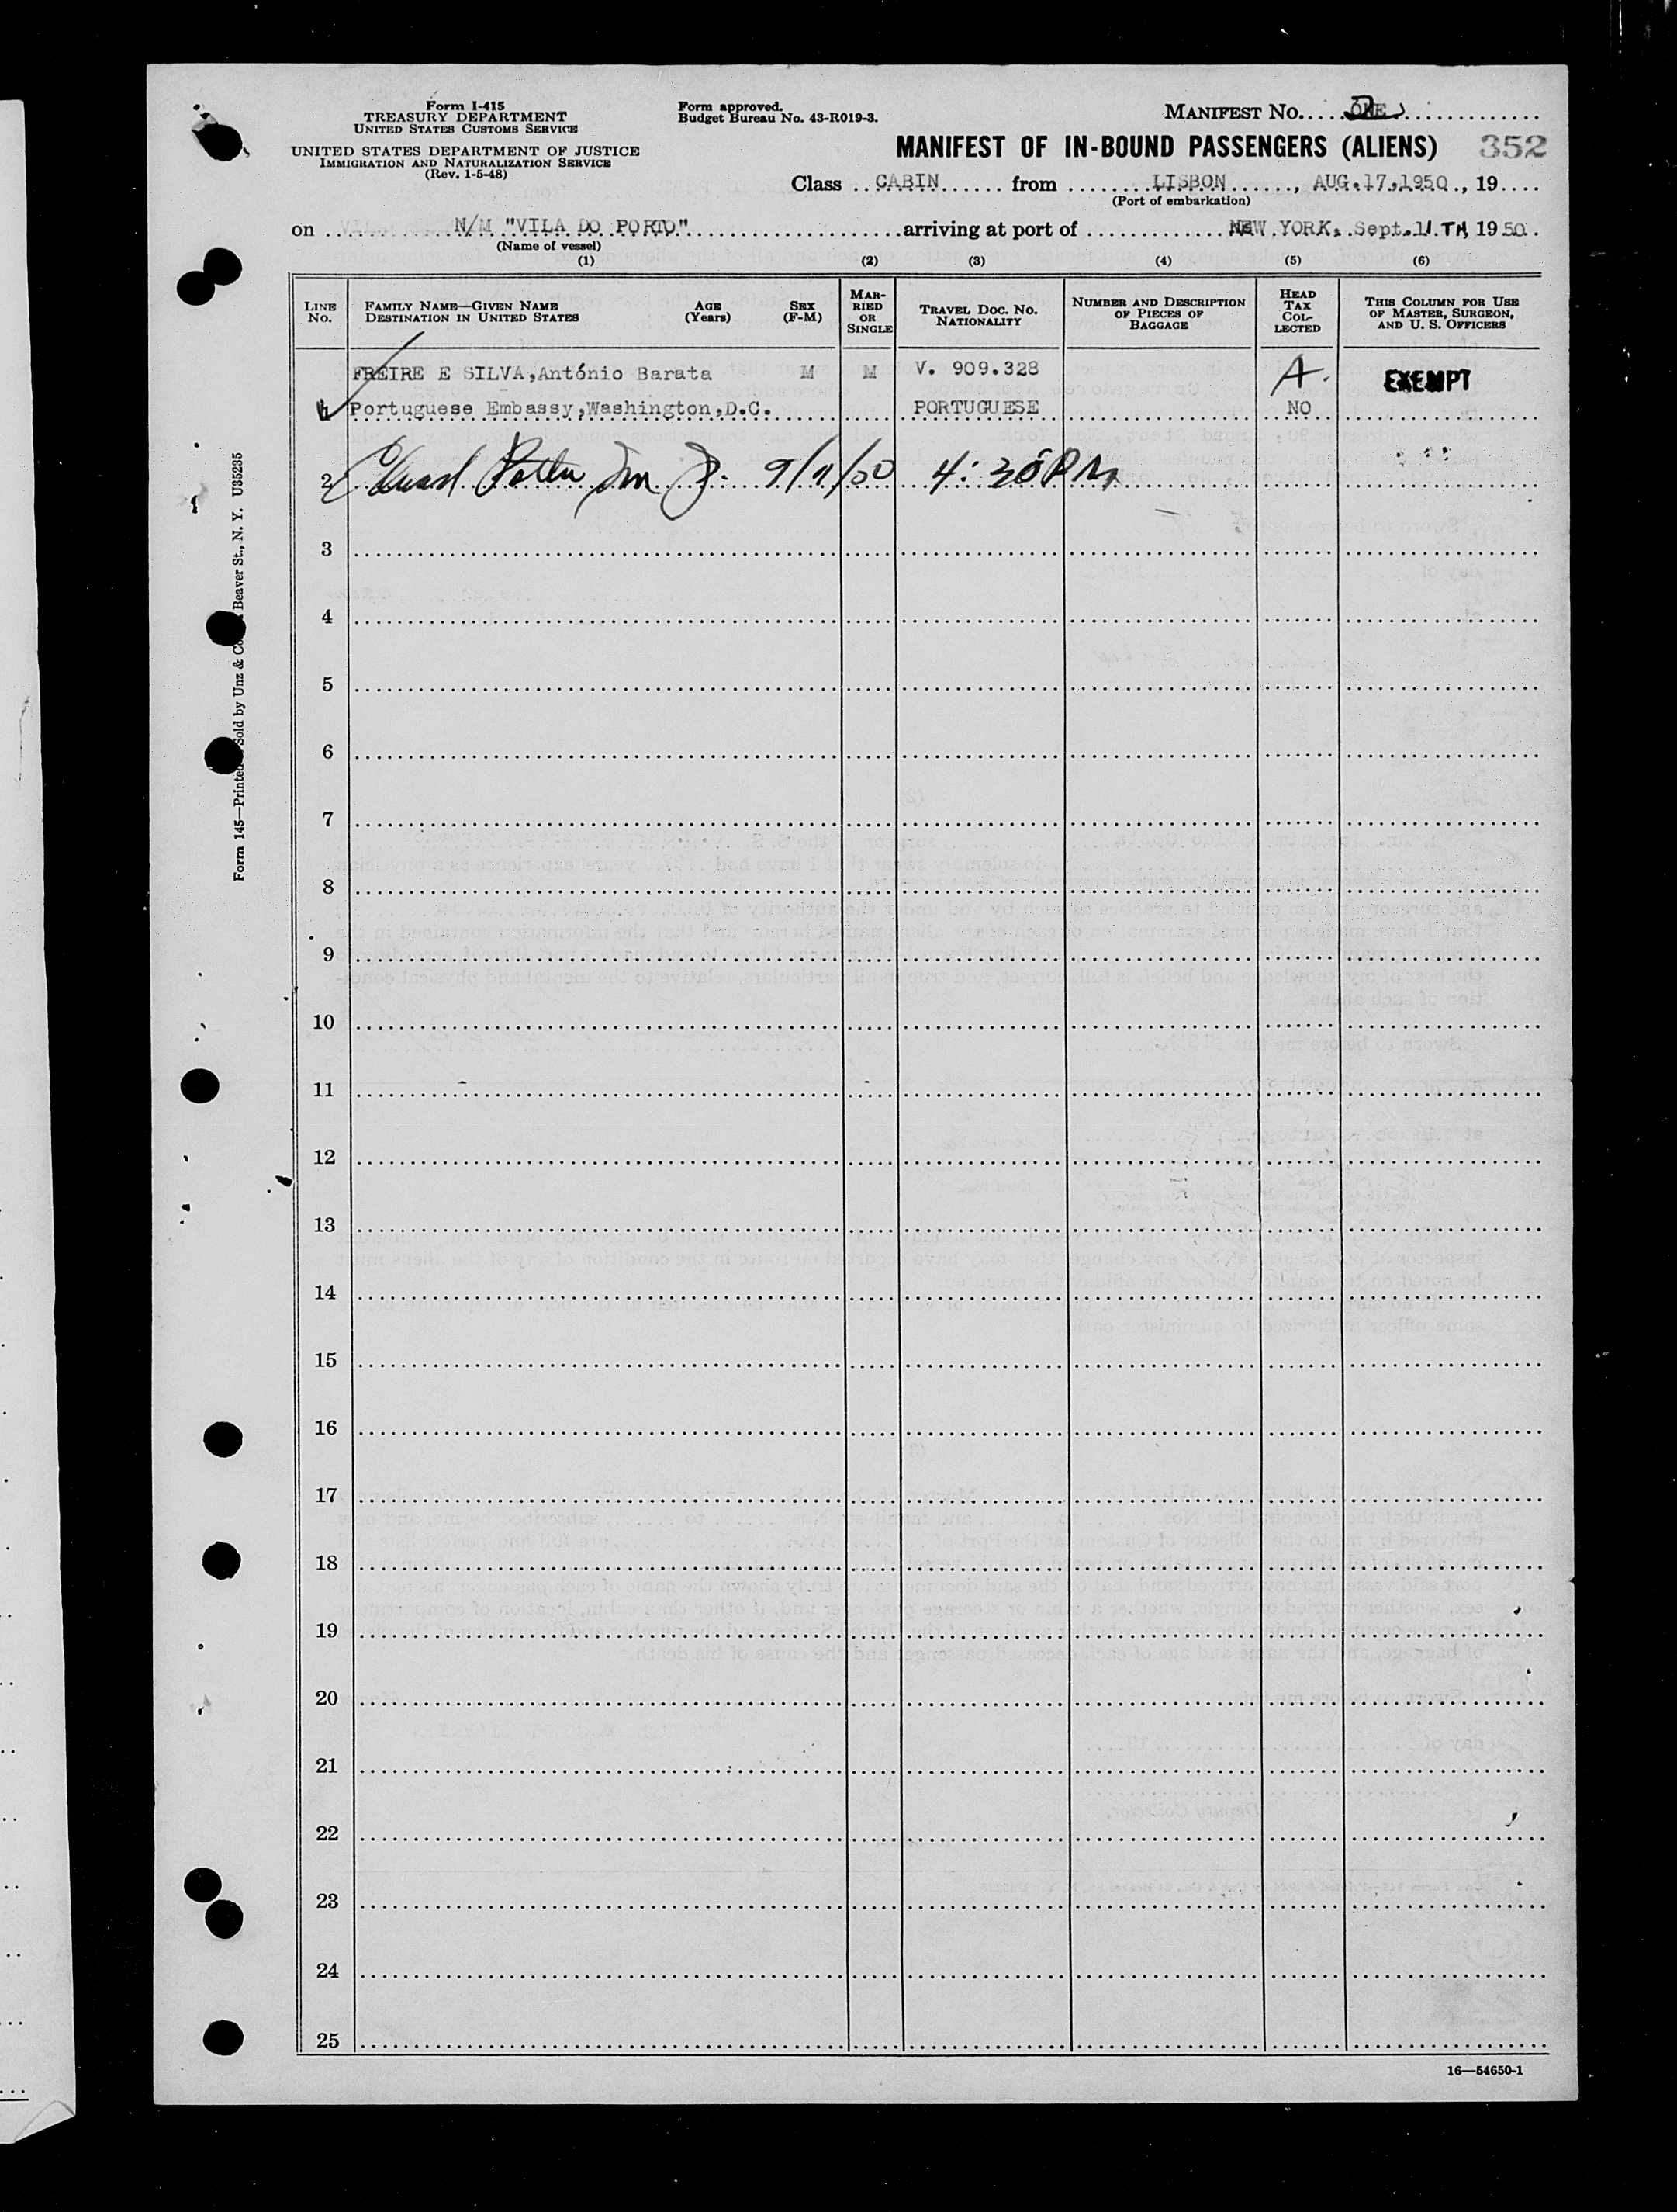 Form I-415
TREASURY DEPARTMENT
UNITED STATES CUSTOMS SERVICE
UNITED STATES DEPARTMENT OF JUSTICE
IMMIGRATION AND NATURALIZATION SERVICE
(Rev. 1-5-48)
Form approved.
Budget Bureau No. 43-R019-3.
MANIFEST No. 2
MANIFEST OF IN-BOUND PASSENGERS (ALIENS) 352
Class CABIN from LISBON, AUG.17,1950, 19
(Port of embarkation)
on N/M "VILA DO PORTO" arriving at port of NEW YORK, Sept. 11.TH 1950
(Name of vessel)
(1) (2) (3) (4) (5) (6)
LINE No. FAMILY NAME—GIVEN NAME DESTINATION IN UNITED STATES AGE (Years) SEX (F-M) MARRIED OR SINGLE TRAVEL DOC. NO. NATIONALITY NUMBER AND DESCRIPTION OF PIECES OF BAGGAGE HEAD TAX COLLECTED THIS COLUMN FOR USE OF MASTER, SURGEON, AND U. S. OFFICERS
FREIRE E SILVA,António Barata M M V. 909.328 A. EXEMPT
1 Portuguese Embassy,Washington,D.C. PORTUGUESE NO
2 9/11/50 4:30 PM
3
4
5
6
7
8
9
10
11
12
13
14
15
16
17
18
19
20
21
22
23
24
25
16—54650-1
Form 145—Printed Sold by Unz & Co. Beaver St., N. Y. U35235